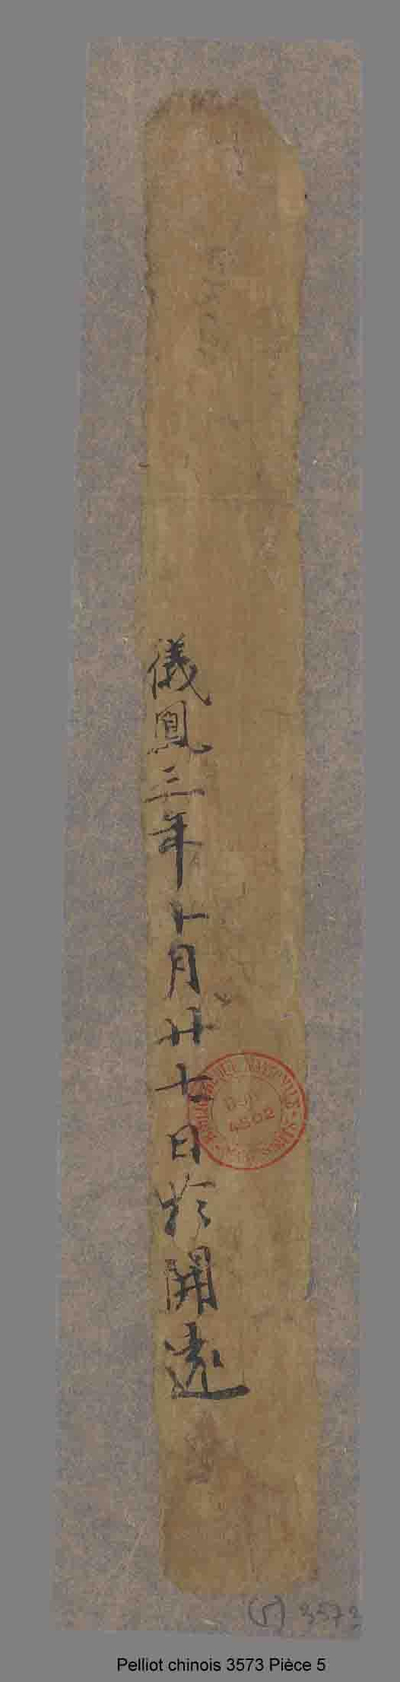 儀鳳三年十月廿七日於開遠
(5) 3573
Pelliot chinois 3573 Pièce 5